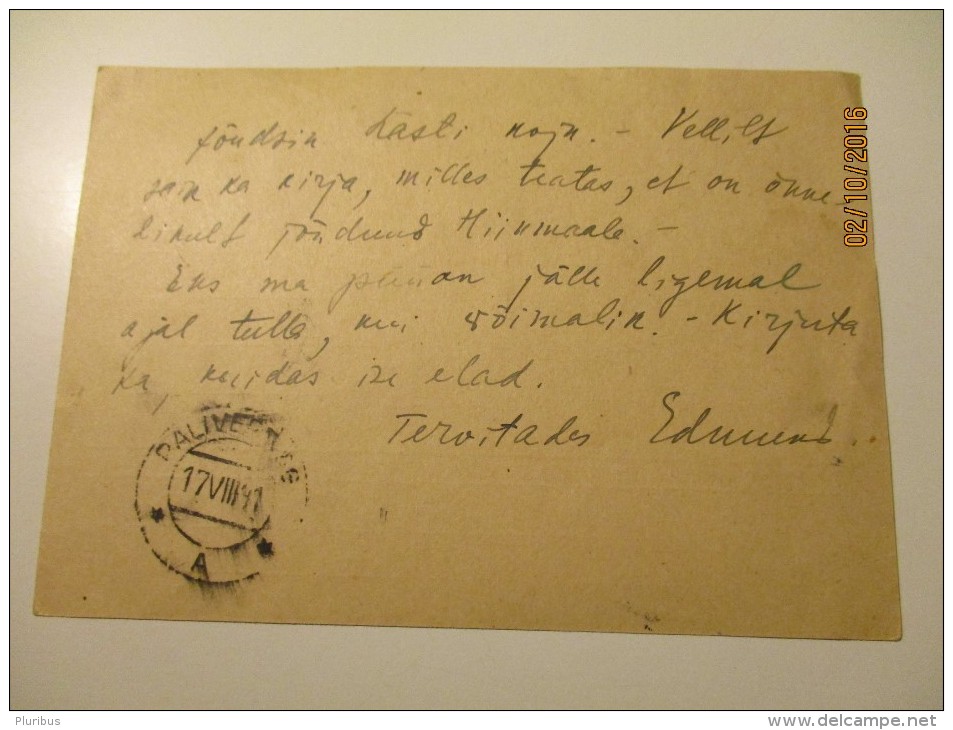 jõudsin hästi koju. - Vellilt
sain ka kirja, milles teatas, et on õnne-
likult jõudnud Hiiumaale. -
Eks ma püüan jälle ligemal
ajal tulla, kui võimalik. - Kirjuta
ka, kuidas ise elad.
Tervitades Edmund.
PALIVERE
17 VIII 41
A
02/10/2016
Pluribus
www.delcampe.net